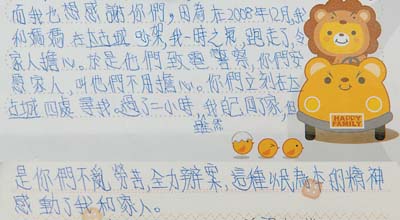 而我也想感謝你們，因為在2008年12月，我
和媽媽在上城吵架，我一時之氣，跑走了，令
家人擔心。於是他們致電警察，你們安
慰家人，叫他們不用擔心。你們立刻在上
城四處尋我。過了一小時，我自己回了家，但
雖然
HAPPY
FAMILY
是你們不亂勞苦，全力辦案，這種以民為本的精神
感動了我和家人。